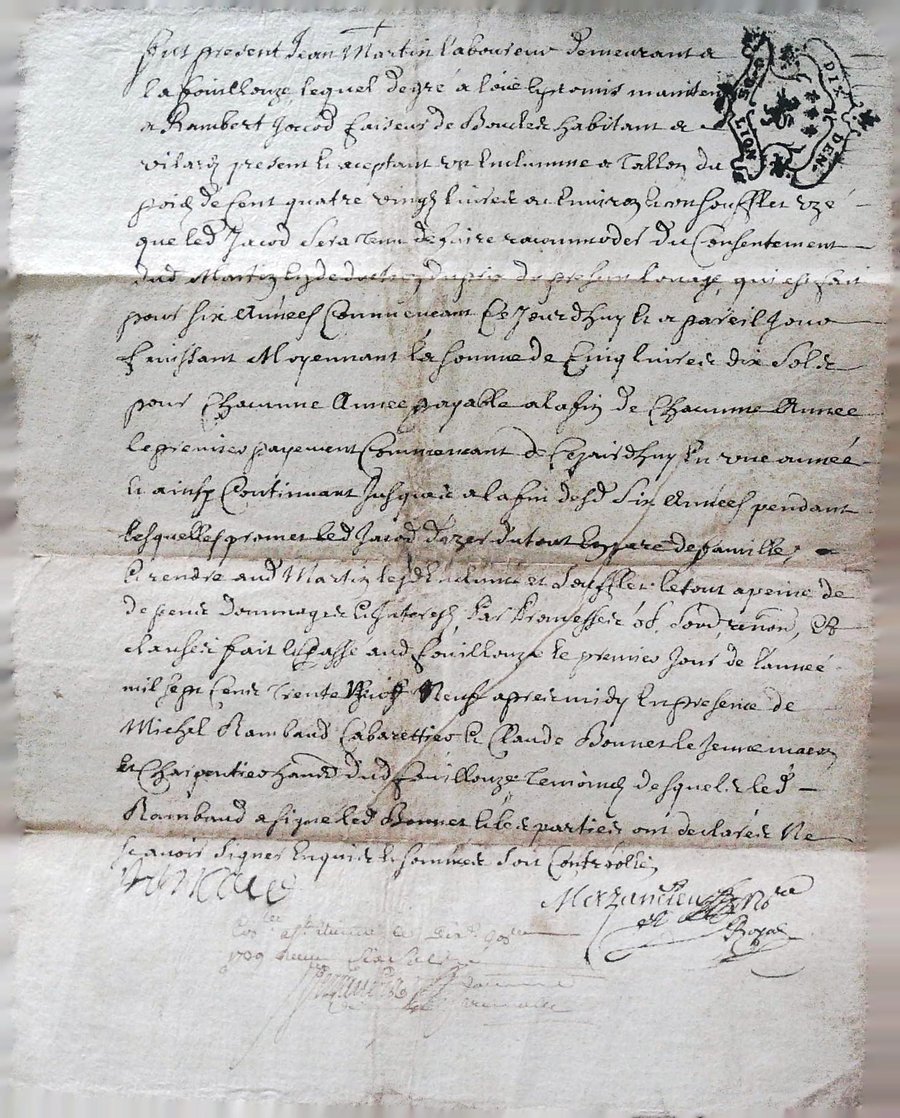 fut present Jean Martin laboureur demeurant a
la fouillouze lequel de gré a loué & promis mainten
a Rambert Jacod faiseur de Boucles habitant a
present & aceptant une Enclumme a Tallon du
poid de Cent quatre vingt livres ou Environ & son soufflet uzé
que led Jacod sera tenu de faire racommoder du Consentement
dud Martin du prix du present louage, qui est fait
pour six Années Commencant Ce Jourdhuy & a pareil Jour
finissant Moyennant la somme de Cinq livres dix Sols
pour Chacunne Année payable a la fin de Chacunne Année
le premier payement Commencant de Ce jourdhuy En une année
& ainsy Continuant Jusques a la fin desd Six Années pendant
lesquelles promet led Jacod duzer du tout En pere de famille,
& rendre aud Martin lesd Enclume et Soufflet le tout a peine de
de peine dommages & Interests, Par Promesses ob. Soud, renon, Et
clauses fait & Passé aud fouillouze le premier Jour de l'année
mil sept Cent Trente Neuf apres midy En presence de
Michel Rambaud Cabarettier & Claude Bonnet le Jeune macon
& Charpentier dud fouillouze Temoins desquels led
Rambaud a signé led Bonnet & les parties ont declarés Ne
scavoir Signer Enquis & sommés Soit Controllé
Rambaud
Nore
Royal
1739
LION
DIX DEN.